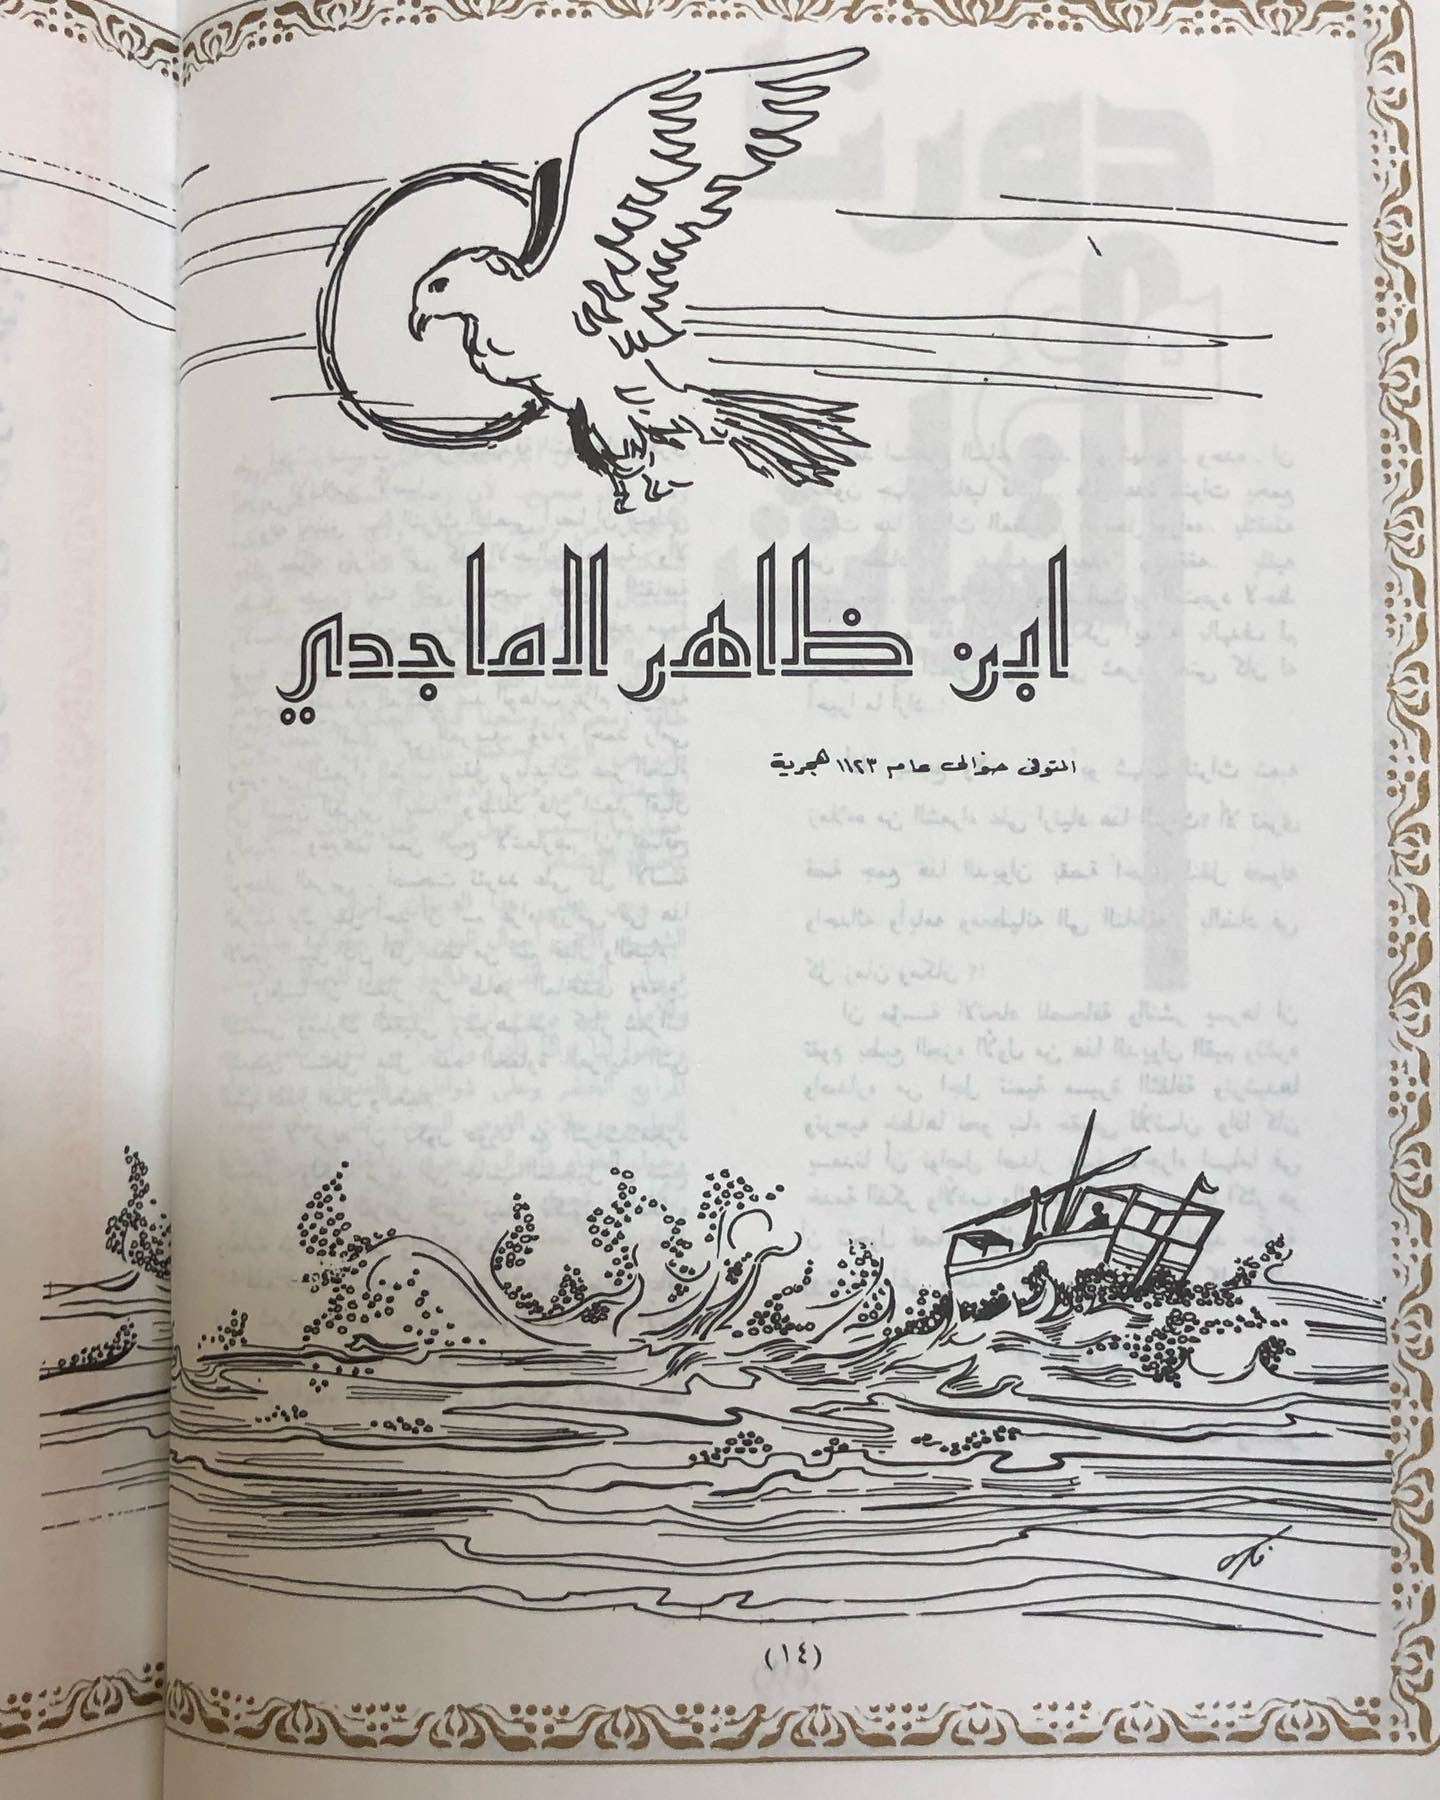 ابن ظاهر الماجدي
المتوفى حوالى عام ١١٢٣ هجرية
(١٤)